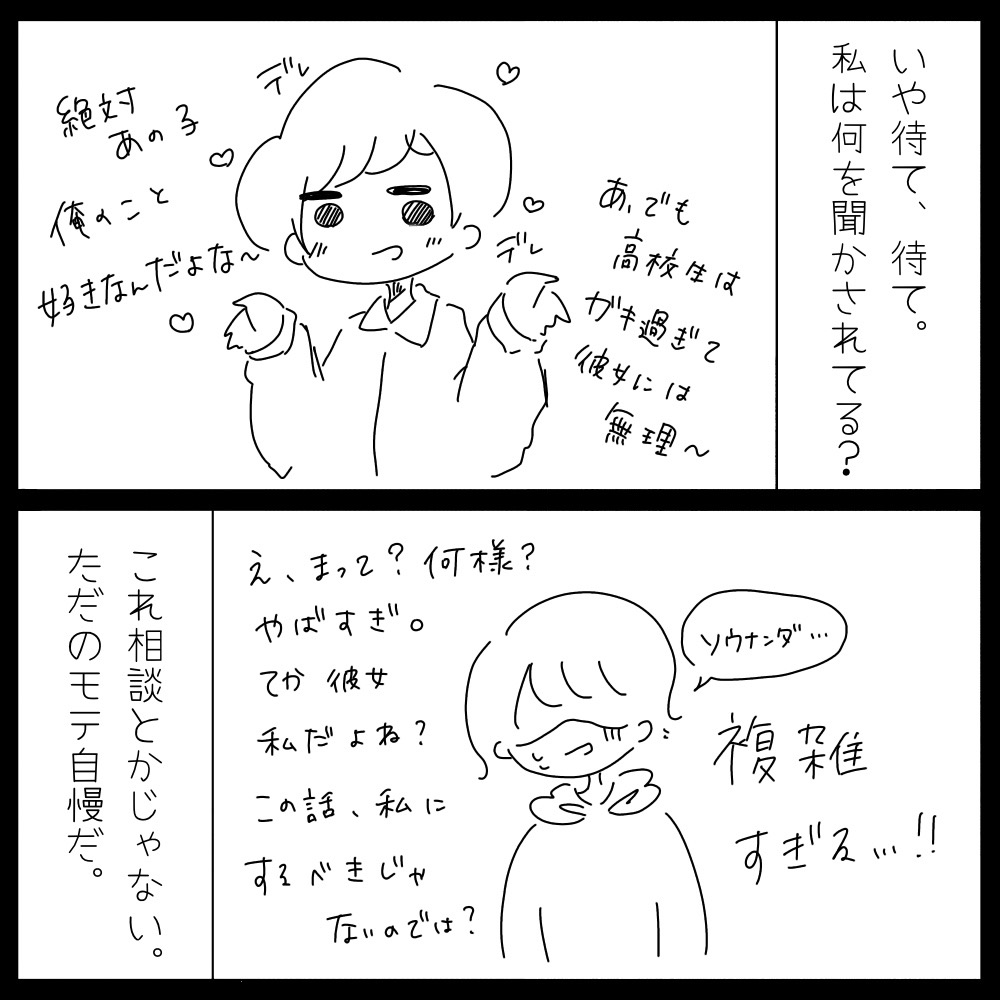 いや待て、待て。
私は何を聞かされてる?
デレ
デレ
あ、でも
高校生は
ガキ過ぎて
彼女には
無理〜
絶対
あの子
俺のこと
好きなんだよな〜
ソウナンダ…
複雑
すぎる…!!
え、まって?何様?
やばすぎ。
てか彼女
私だよね?
この話、私に
するべきじゃ
ないのでは?
これ相談とかじゃない。
ただのモテ自慢だ。